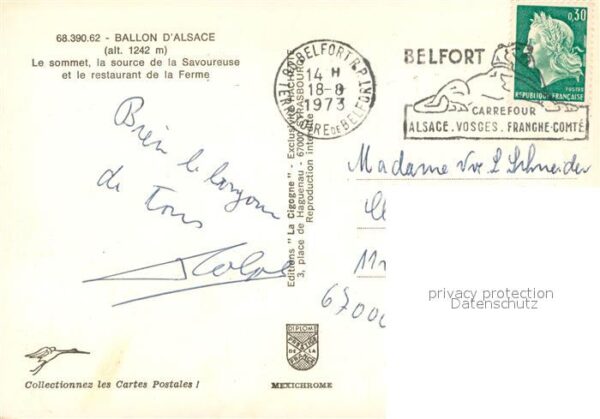 68.390.62 - BALLON D'ALSACE
(alt. 1242 m)
Le sommet, la source de la Savoureuse
et le restaurant de la Ferme
Bien le bonjour
de Tous
Editions "La Cigogne" - Exclusivité HACHETTE
3, place de Haguenau - 67000 STRASBOURG
Reproduction interdite
BELFORT R.P.
14 H
18-8
1973
TERRITOIRE DE BELFORT
BELFORT
CARREFOUR
ALSACE.VOSGES.FRANCHE-COMTÉ
0,30
POSTES
REPUBLIQUE FRANÇAISE
Madame Vve L Schneider
67000
privacy protection
Datenschutz
DIPLOME
PRESTIGE
DE LA
FRANCE
Collectionnez les Cartes Postales !
MEXICHROME